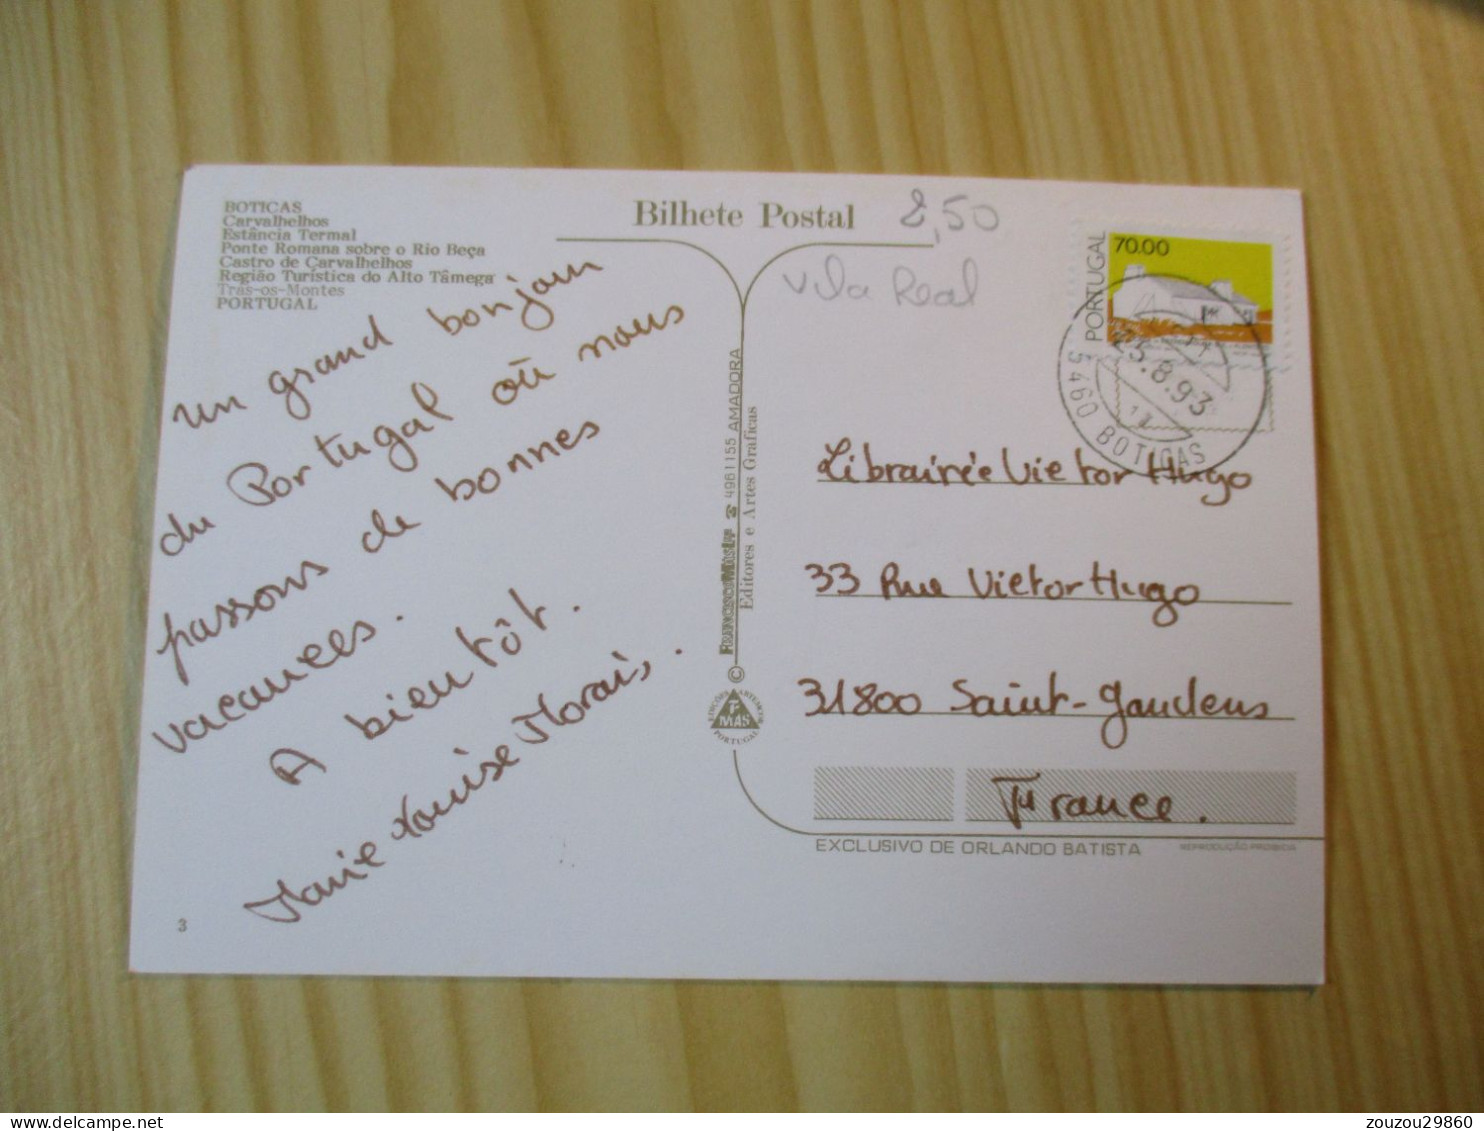 BOTICAS
Carvalhelhos
Estância Termal
Ponte Romana sobre o Rio Beça
Castro de Carvalhelhos
Região Turística do Alto Tâmega
Trás-os-Montes
PORTUGAL
Bilhete Postal
2,50
Vila Real
PORTUGAL
70.00
25.8.93
5460 BOTICAS
un grand bonjour
du Portugal où nous
passons de bonnes
vacances.
A bientôt.
Marie Louise Morais.
3
© FRANCISCO MAS Lda ☎ 4961155 AMADORA
Editores e Artes Gráficas
EDIÇÕES ARTEMCOR
F MAS
PORTUGAL
Librairie Victor Hugo
33 Rue Victor Hugo
31800 Saint-Gaudens
France.
EXCLUSIVO DE ORLANDO BATISTA
REPRODUÇÃO PROIBIDA
zouzou29860